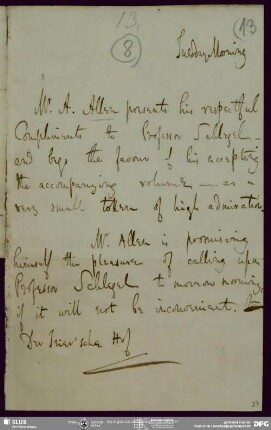 13.
(8)
(13)
Tuesday Morning
Mr. A. Allen presents his respectful
Compliments to Professor Schlegel –
and begs the favour of his accepting
the accompanying volume — as a
very small token of high admiration.
Mr. Allen is promising
himself the pleasure of calling upon
Professor Schlegel to morrow morning
if it will not be inconvenient.
Der Trier'sche Hof
SLUB